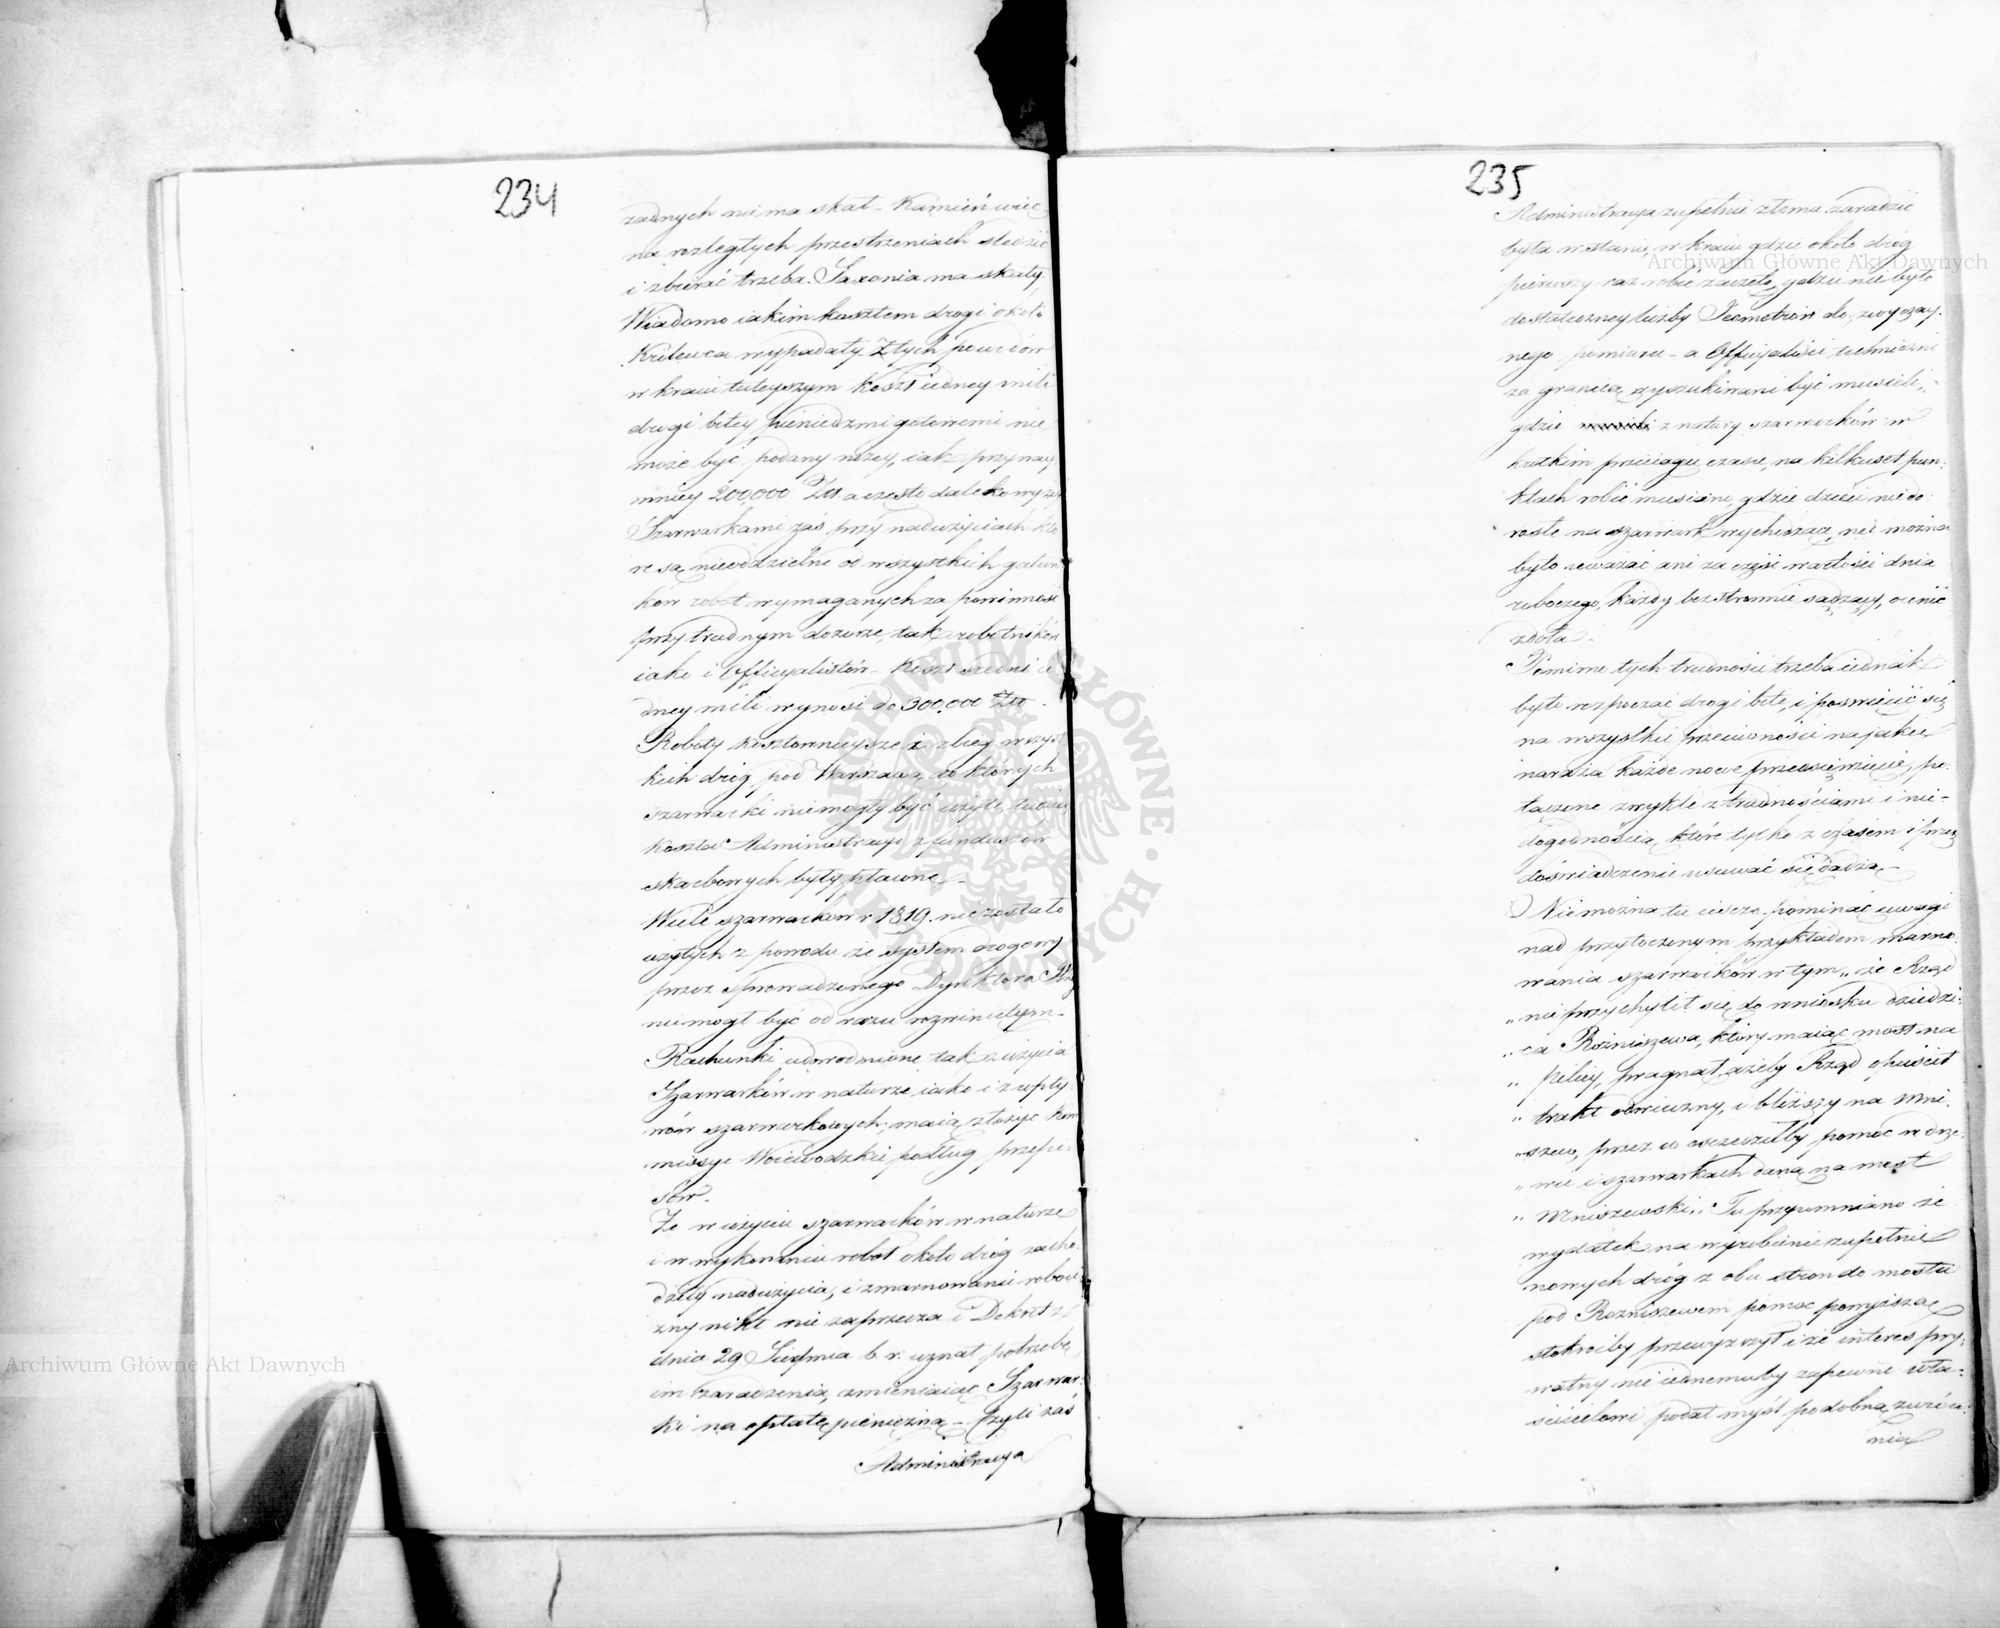 234
żadnych nie ma skał – Kamień więc
na rozległych przestrzeniach śledzić
i zbierać trzeba. Saxonia ma skały
Wiadomo iakim kosztem drogi około
Królewca wypadały. Z tych powodów
w kraiu tuteyszym koszt iedney mili
drogi bitey pieniędzmi gotowemi nie
może być podany niżey, iak przynay
mniey 200,000 Złt a często daleko wyżey
Szarwarkami zaś przy nadużyciach któ
re są nieoddzielne od wszystkich gatun
ków robot wymaganych za powinność
przy trudnym dozorze, tak robotników
iako i Officyalistów – Koszt średni ie
dney mili wynosi do 300,000 Złt.
Roboty kosztownieysze i zbieg wszyst
kich dróg pod Warszawą, do których
szarwarki nie mogły być użyte, tudzież
koszta Administracyi z funduszów
skarbowych były
Wiele szarwarków r 1819. nie zostało
użytych z powodu że system drogowy
przez sprowadzonego Dyrektora
nie mogł być od razu rozwiniętym –
Rachunki udowodnione tak z użycia
Szarwarków w naturze iako i z wpły
wów szarwarkowych, maią złożyć Kom
missye Woiewodzkie podług przepi
sów.
Że w użyciu szarwarków w naturze
i w wykonaniu robot około dróg zacho
dziły nadużycia, i zmarnowanie roboci
zny nikt nie zaprzecza i Dekret z
dnia 29 Sierpnia b. r. uznał potrzebę
im zaradzenia, zmieniaiąc Szarwar
ki na opłatę pieniężną – Czyli zaś
Administracya
235
Administracya zupełnie złemu zaradzić
była w stanie, w kraiu gdzie około dróg
pierwszy raz robić zaczęto, gdzie nie było
dostateczney liczby Jeometrów do zwyczay.
nego pomiaru – a Officyaliści techniczni
za granicą wyszukiwani być musieli,
gdzie z natury szarwarków w
krótkim przeciągu czasu, na kilkuset pun:
ktach robić musiano, gdzie dzieci niedo:
rosłe na szarwark wychodzące, nie można
było uważać ani za część wartości dnia
roboczego, każdy bezstronnie sądzący, ocenić
zdoła.
Pomimo tych trudności trzeba iednak
było rozpocząć drogi bite, i poswięcić się
na wszystkie przeciwności na jakie
naraża każde nowe przedsięwzięcie, po:
łączone zwykle z trudnościami i nie-
dogodnością, które tylko z czasem i przez
doświadczenie usuwać się dadzą –
Nie można tu ieszcze pominąć uwagi
nad przytoczonym przykładem marno:
wania szarwarków w tym „że Rząd
„nie przychylił się do wniosku dziedzi:
„ca Rozniszewa, który maiąc most na
„Pilicy, pragnął ażeby Rząd opuścił
„trakt odwieczny, i bliższy na Mni.
„szew, przez co oszczędziłby pomoc w drze:
„wie i szarwarkach daną na most
„Mniszewski„ Tu przypomniano że
wydatek na wyrobienie zupełnie
nowych dróg z obu stron do mostu
pod Rozniszewem pomoc powyższą
stokroćby przewyższył i że interes pry:
watny nie iednemuby zapewne wła-
ścicielowi podał myśl podobną zwróce:
nia
Archiwum Główne Akt Dawnych
Archiwum Główne Akt Dawnych
ARCHIWUM GŁÓWNE AKT DAWNYCH